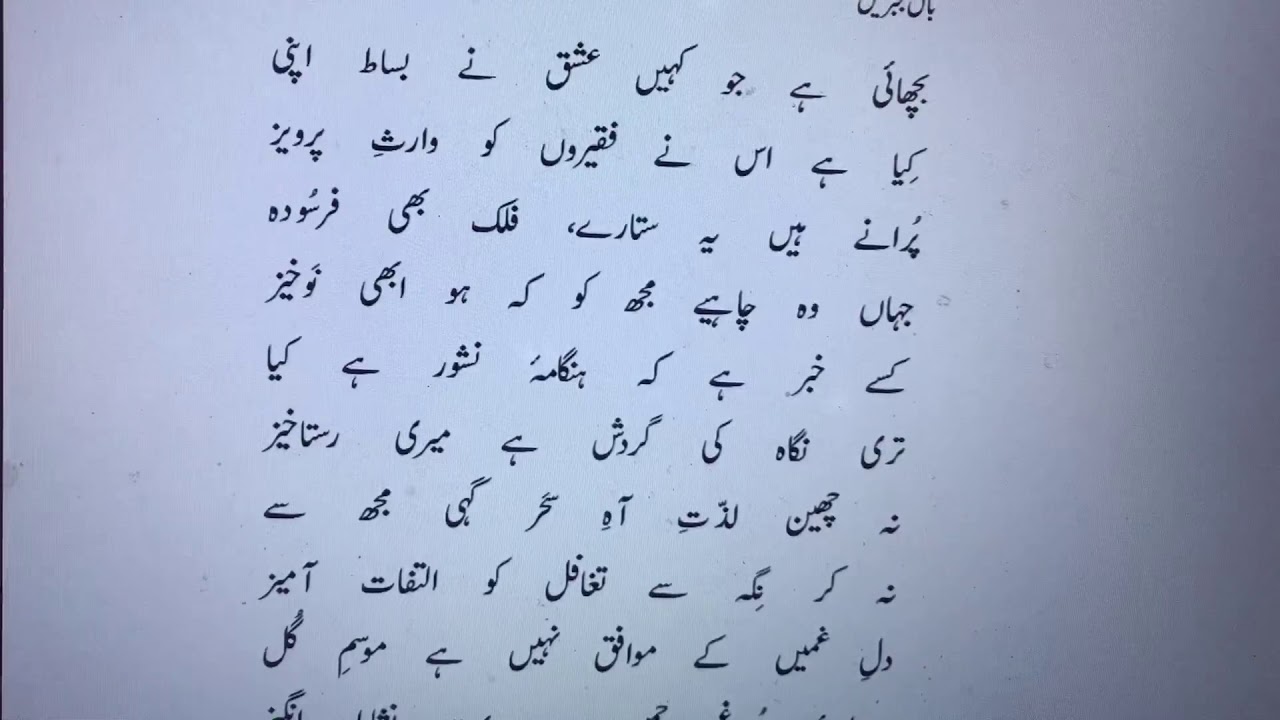 بالِ جبریل
بچھائی ہے جو کہیں عشق نے بساط اپنی
کِیا ہے اس نے فقیروں کو وارثِ پرویز
پُرانے ہیں یہ ستارے، فلک بھی فرسُودہ
جہاں وہ چاہیے مجھ کو کہ ہو ابھی نَوخیز
کسے خبر ہے کہ ہنگامۂ نشور ہے کیا
تری نگاہ کی گردش ہے میری رستاخیز
نہ چھین لذّتِ آہِ سحَر گہی مجھ سے
نہ کر نِگہ سے تغافل کو التفات آمیز
دلِ غمیں کے موافق نہیں ہے موسمِ گُل